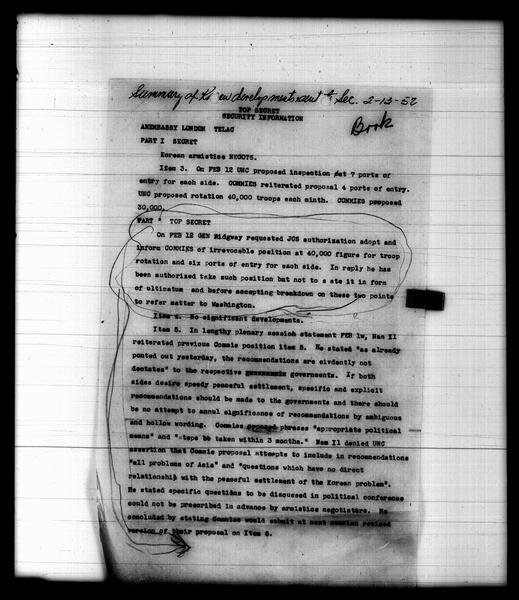 Summary of developments sent to Sec. 2-13-52
TOP SECRET
SECURITY INFORMATION
Book
AMEMBASSY LONDON TELAC
PART I SECRET
Korean armistice NEGOTS.
Item 3. On FEB 12 UNC proposed inspection at 7 ports of
entry for each side. COMMIES reiterated proposal 4 ports of entry.
UNC proposed rotation 40,000 troops each minth. COMMIES proposed
30,000.
PART TOP SECRET
On FEB 12 GEN Ridgway requested JCS authorization adopt and
inform COMMIES of irrevocable position at 40,000 figure for troop
rotation and six ports of entry for each side. In reply he has
been authorized take such position but not to state it in form
of ultimatum and before accepting breakdown on these two points
to refer matter to Washington.
Item 4. No significant developments.
Item 5. In lengthy plenary session statement FEB 1w, Nam Il
reiterated previous Commie position item 5. He stated "as already
ponted out yesterday, the recommendations are eivdently not
dectates" to the respective governments. If both
sides desire speedy peaceful settlement, specific and explicit
recommendations should be made to the governments and there should
be no attempt to annul significance of recommendations by ambiguous
and hollow wording. Commies phrases "appropriate political
means" and "steps be taken within 3 months." Nam Il denied UNC
assertion that Commie proposal attempts to include in recommendations
"all problems of Asia" and "questions which have no direct
relationship with the peaceful settlement of the Korean problem".
He stated specific questions to be discussed in political conference
could not be prescribed in advance by armistice negotiators. He
concluded by stating Commies would submit at next session revised
version of their proposal on Item 5.